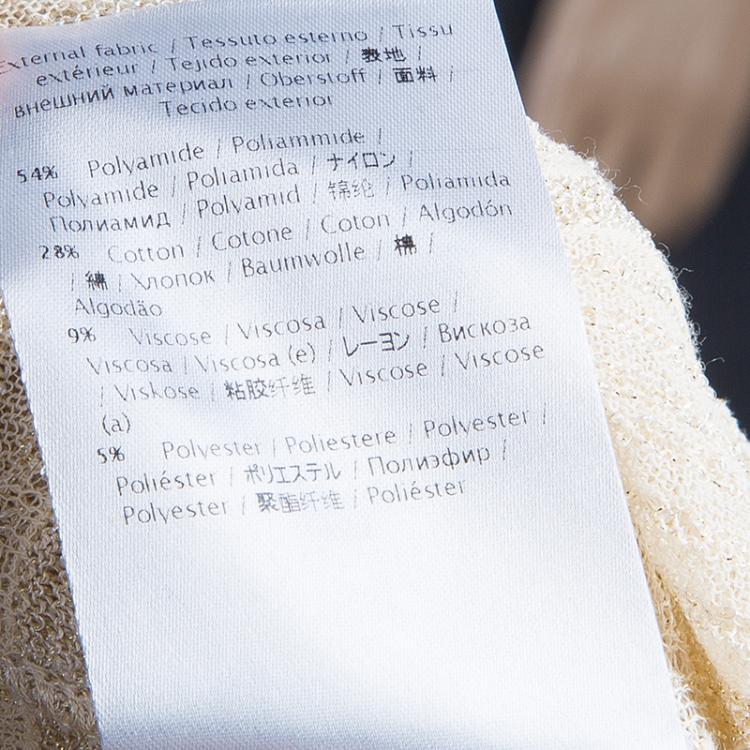 External fabric / Tessuto esterno / Tissu
extérieur / Tejido exterior / 表地 /
внешний материал / Oberstoff / 面料 /
Tecido exterior
54% Polyamide / Poliammide /
Polyamide / Poliamida / ナイロン /
Полиамид / Polyamid / 锦纶 / Poliamida
28% Cotton / Cotone / Coton / Algodón
/ 綿 / Хлопок / Baumwolle / 棉 /
Algodão
9% Viscose / Viscosa / Viscose /
Viscosa / Viscosa (e) / レーヨン / Вискоза
/ Viskose / 粘胶纤维 / Viscose / Viscose
(a)
5% Polyester / Poliestere / Polyester /
Poliéster / ポリエステル / Полиэфир /
Polyester / 聚酯纤维 / Poliéster